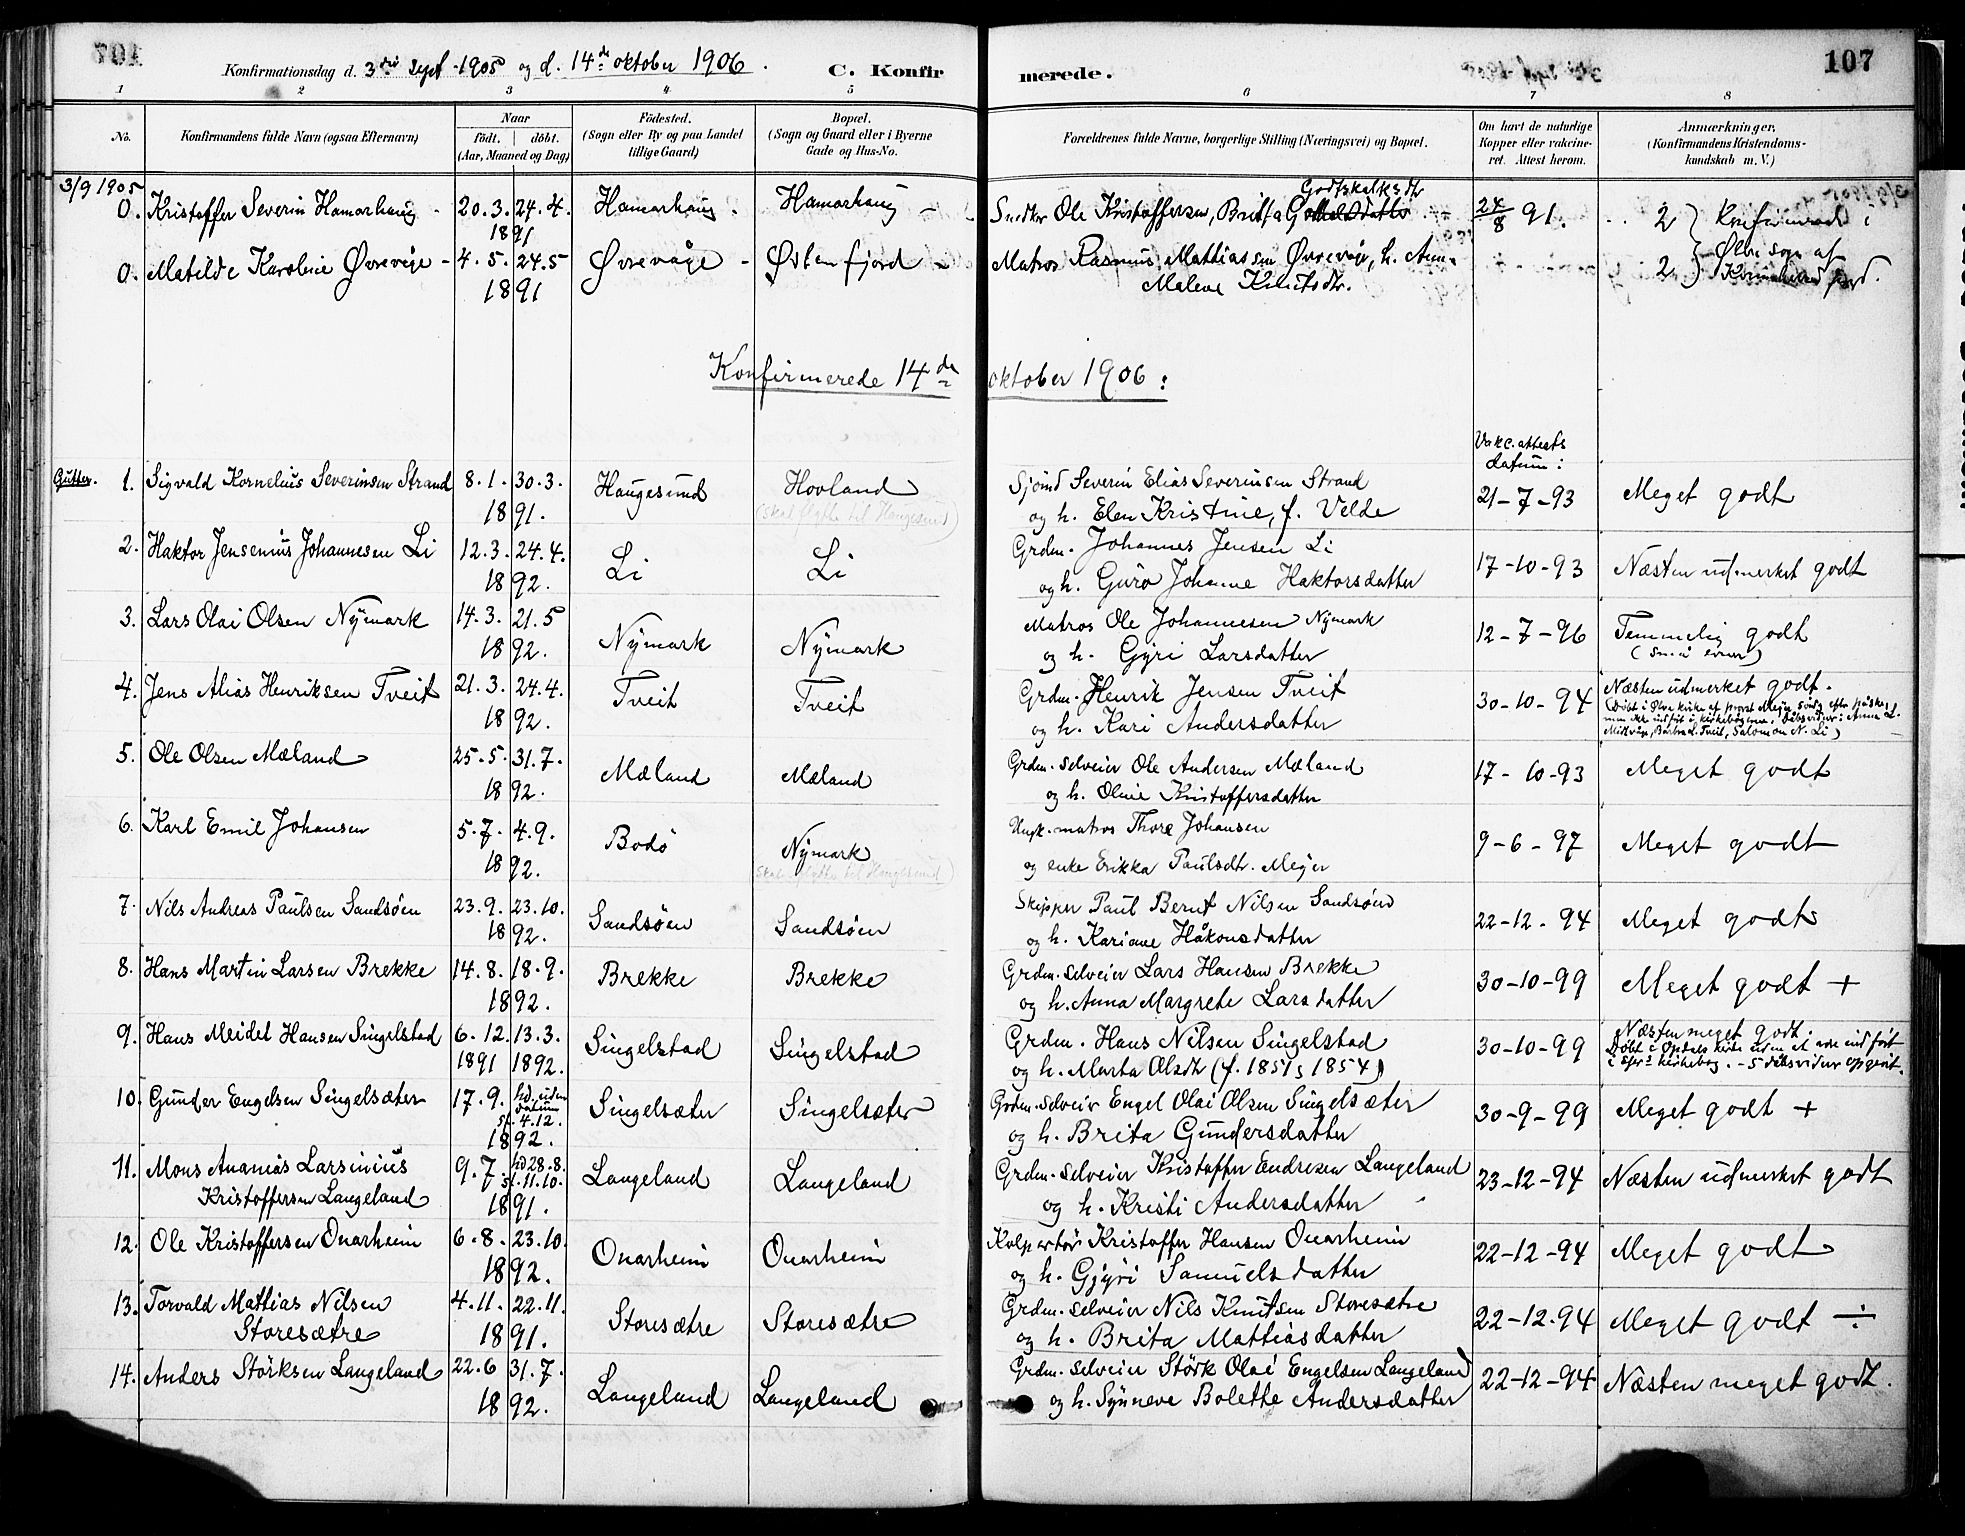 Konfirmationsdag d. 3die Sept. 1905 og d. 14de oktober 1906. C. Konfirmerede. 107
1 2 3 4 5 6 7 8
No. Konfirmandens fulde Navn (ogsaa Efternavn) Naar født. døbt. (Aar, Maaned og Dag) Fødested. (Sogn eller By og paa Landet tillige Gaard) Bopæl. (Sogn og Gaard eller i Byerne Gade og Hus-No. Forældrenes fulde Navne, borgerlige Stilling (Næringsvei) og Bopæl. Om havt de naturlige Kopper eller vakcineret. Attest herom. Anmærkninger. (Konfirmandens Kristendomskundskab m. V.)
3/9 1905
0. Kristoffer Severin Hamarhaug 20.3. 24.4. 1891 Hamarhaug Hamarhaug Snedker Ole Kristoffersen, Brita Godtskalksdtr 24/8 91. 2 Konfirmerede i
0. Matilde Karoline Øvrevåge 4.5. 24.5 1891 Øvrevåge Østenfjord Matros Rasmus Mattiassen Øvrevåge, h. Anna Malene Knutsdtr. 2 Ølve sogn af
Konfirmerede 14de oktober 1906:
Vakc. attests datum:
Gutter. 1. Sigvald Kornelius Severinsen Strand 8.1. 30.3. 1891. Haugesund Hovland (skal flytte til Haugesund) Sjømd Severin Elias Severinsen Strand
og h. Elen Kristine, f. Velde 21-7-93 Meget godt
2. Haktor Jensenius Johannesen Li 12.3. 24.4. 1892. Li Li Grdm. Johannes Jensen Li
og h. Guro Johanne Haktorsdatter 17-10-93 Næsten udmerket godt
3. Lars Olai Olsen Nymark 14.3. 21.5 1892. Nymark Nymark Matros Ole Johannesen Nymark
og h. Gyri Larsdatter 12-7-96 Temmelig godt
(små evner)
4. Jens Alias Henriksen Tveit 21.3. 24.4. 1892. Tveit Tveit Grdm. Henrik Jensen Tveit
og h. Kari Andersdatter 30-10-94 Næsten udmerket godt.
(Døbt i Ølve kirke af provst Mejer sdg efter påske,
men ikke indført i kirkebogen. Dåbsvidner: Anna L.
Midtvåge, Barbra L. Tveit, Salomon N. Li)
5. Ole Olsen Mæland 25.5. 31.7. 1892. Mæland Mæland Grdm. selveier Ole Andersen Mæland
og h. Oline Kristoffersdatter 17-10-93 Meget godt
6. Karl Emil Johansen 5.7. 4.9. 1892. Bodø Nymark (skal flytte til Haugesund) Ungk. matros Thore Johansen
og enke Erikka Paulsdtr. Mejer 9-6-97 Meget godt
7. Nils Andreas Paulsen Sandsøen 23.9. 23.10. 1892. Sandsøen Sandsøen Skipper Paul Bernt Nilsen Sandsøen
og h. Kariane Håkonsdatter 22-12-94 Meget godt
8. Hans Martin Larsen Brekke 14.8. 18.9. 1892. Brekke Brekke Grdm. selveier Lars Hansen Brekke
og h. Anna Margrete Larsdatter 30-10-99 Meget godt +
9. Hans Meidel Hansen Singelstad 6.12. 13.3. 1891 1892. Singelstad Singelstad Grdm. Hans Nilsen Singelstad
og h. Marta Olsdtr (f. 1851 & 1854) 30-10-99 Næsten meget godt.
Døbt i Opdals kirke uden at være indført
i kirkebog. - 5 dåbsvidner opgivet.
10. Gunder Engelsen Singelsæter 17.9. hd. uden datum st. 4.12. 1892. Singelsæter Singelsæter Grdm. selveier Engel Olai Olsen Singelsæter
og h. Brita Gundersdatter 30-9-99 Meget godt +
11. Mons Ananias Larsinius
Kristoffersen Langeland 9.7. hd 28.8. st. 11.10. 1891. Langeland Langeland Grdm. selveier Kristoffer Endresen Langeland
og h. Kristi Andersdatter 23-12-94 Næsten udmerket godt
12. Ole Kristoffersen Onarheim 6.8. 23.10. 1892. Onarheim Onarheim Kolportør Kristoffer Hansen Onarheim
og h. Gjyri Samuelsdatter 22-12-94 Meget godt
13. Torvald Mattias Nilsen
Storesætre 4.11. 22.11. 1891. Storesætre Storesætre Grdm. selveier Nils Knutsen Storesætre
og h. Brita Mattiasdatter 22-12-94 Meget godt ÷
14. Anders Størksen Langeland 22.6 31.7. 1892. Langeland Langeland Grdm. selveier Størk Olai Engelsen Langeland
og h. Synneve Bolette Andersdatter 22-12-94 Næsten meget godt.